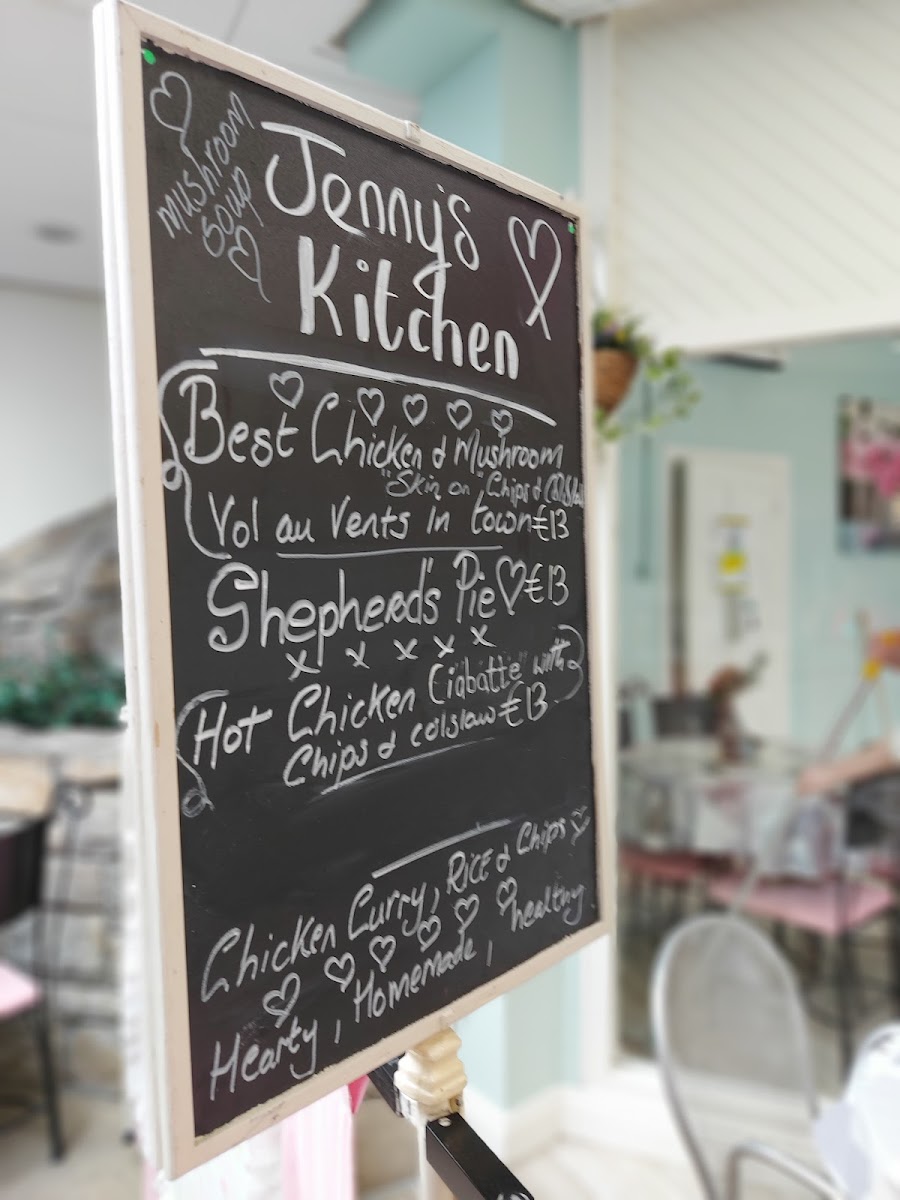 mushroom
soup
Jenny's
Kitchen
Best Chicken & Mushroom
"Skin on" Chips &
Vol au Vents in town €13
Shepherd's Pie €13
x x x x x
Hot Chicken Ciabatte with
Chips & coilslaw €13
Chicken Curry, RICE & Chips
Hearty, Homemade, healthy